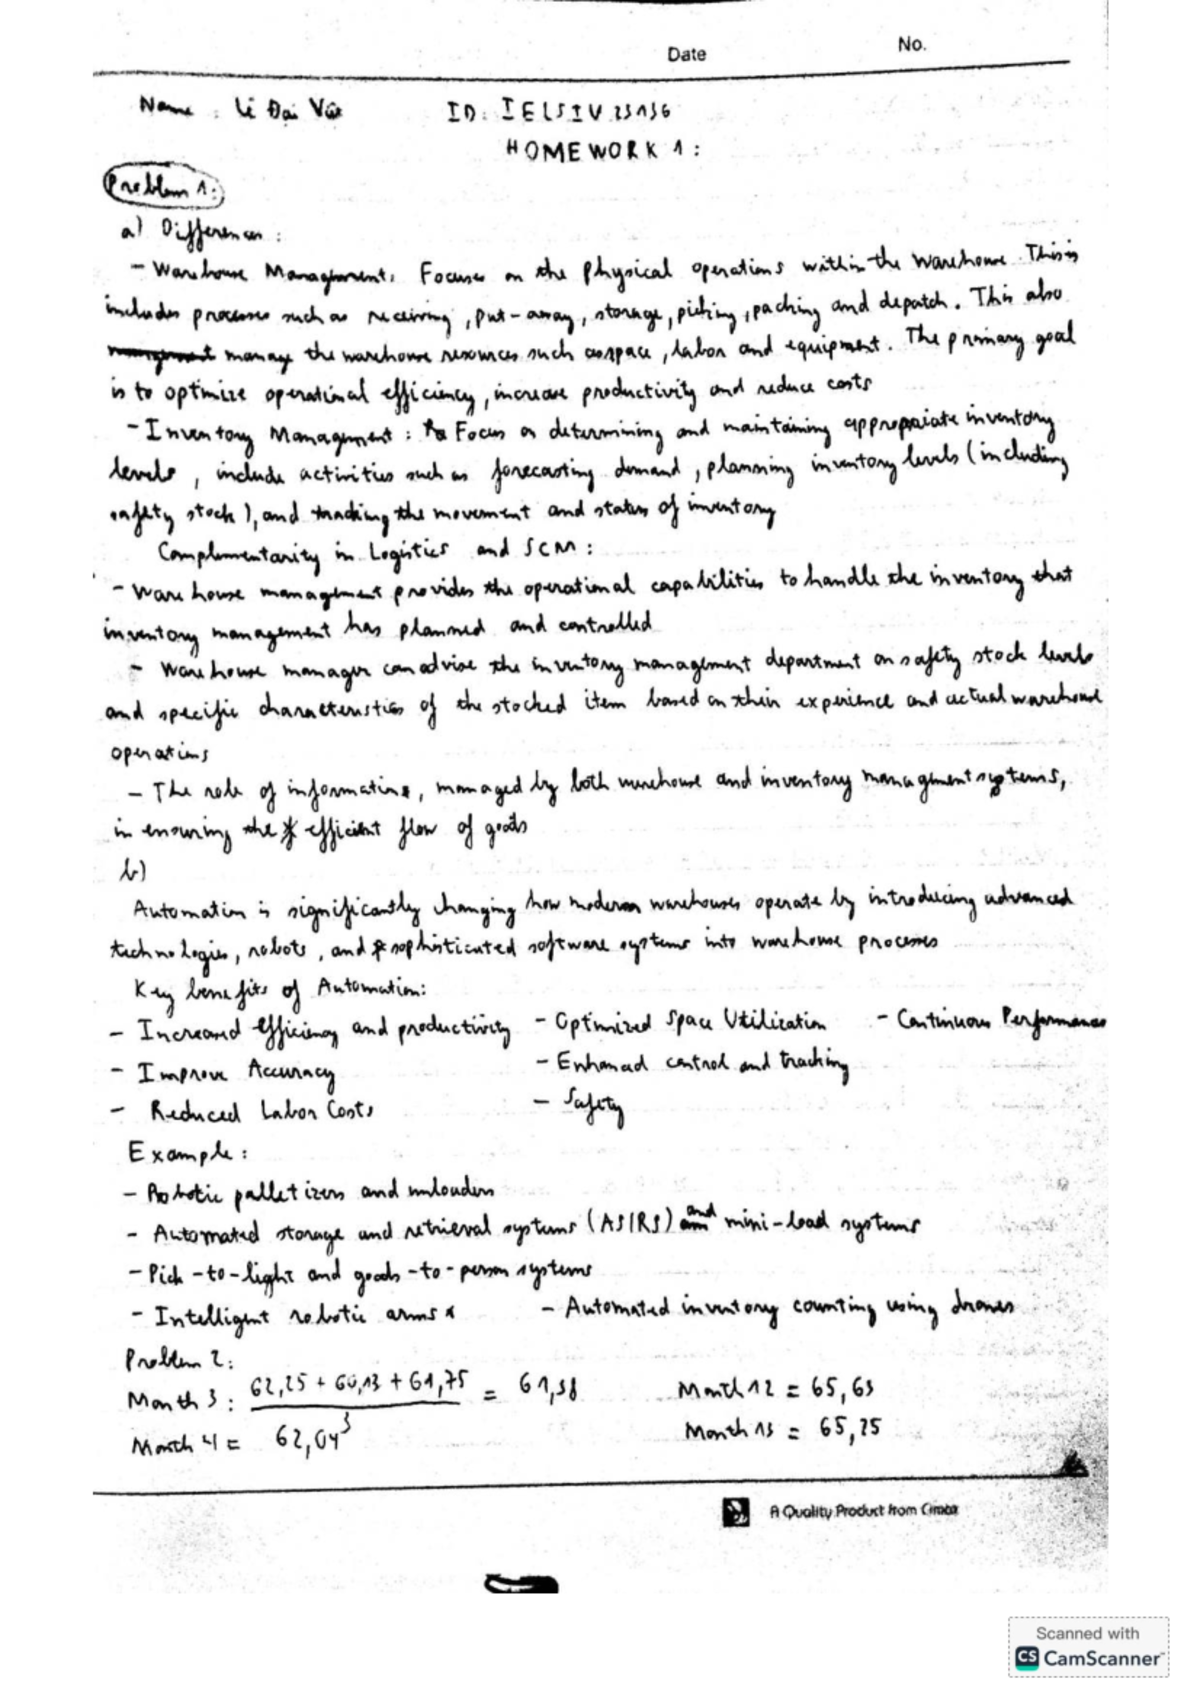 Date No.
Name : Lê Đại Việt ID: IELSIV23136
HOMEWORK 1:
Problem 1:
a) Differences:
- Warehouse Management: Focuses on the physical operations within the warehouse. This is
includes processes such as receiving, put-away, storage, picking, packing and depatch. This also
manage the warehouse resources such as space, labor and equipment. The primary goal
is to optimize operational efficiency, increase productivity and reduce costs
- Inventory Management: Focus on determining and maintaining appropriate inventory
levels, include activities such as forecasting demand, planning inventory levels (including
safety stock), and tracking the movement and status of inventory
Complementarity in Logistics and SCM:
- Warehouse management provides the operational capabilities to handle the inventory that
inventory management has planned and controlled
- Warehouse manager can advise the inventory management department on safety stock levels
and specific characteristics of the stocked item based on their experience and actual warehouse
operations
- The role of information, managed by both warehouse and inventory management systems,
in ensuring the efficient flow of goods
b)
Automation is significantly changing how modern warehouses operate by introducing advanced
technologies, robots, and sophisticated software systems into warehouse processes
Key benefits of Automation:
- Increased efficiency and productivity - Optimized Space Utilization - Continuous Performance
- Improve Accuracy - Enhanced control and tracking
- Reduced Labor Costs - Safety
Example:
- Robotic palletizers and unloaders
- Automated storage and retrieval systems (AS/RS) and mini-load systems
- Pick-to-light and goods-to-person systems
- Intelligent robotic arms - Automated inventory counting using drones
Problem 2:
Month 3: 62,25 + 60,13 + 61,75 / 3 = 61,38 Month 12 = 65,63
Month 4 = 62,04 Month 13 = 65,25
A Quality Product from
Scanned with
CS CamScanner